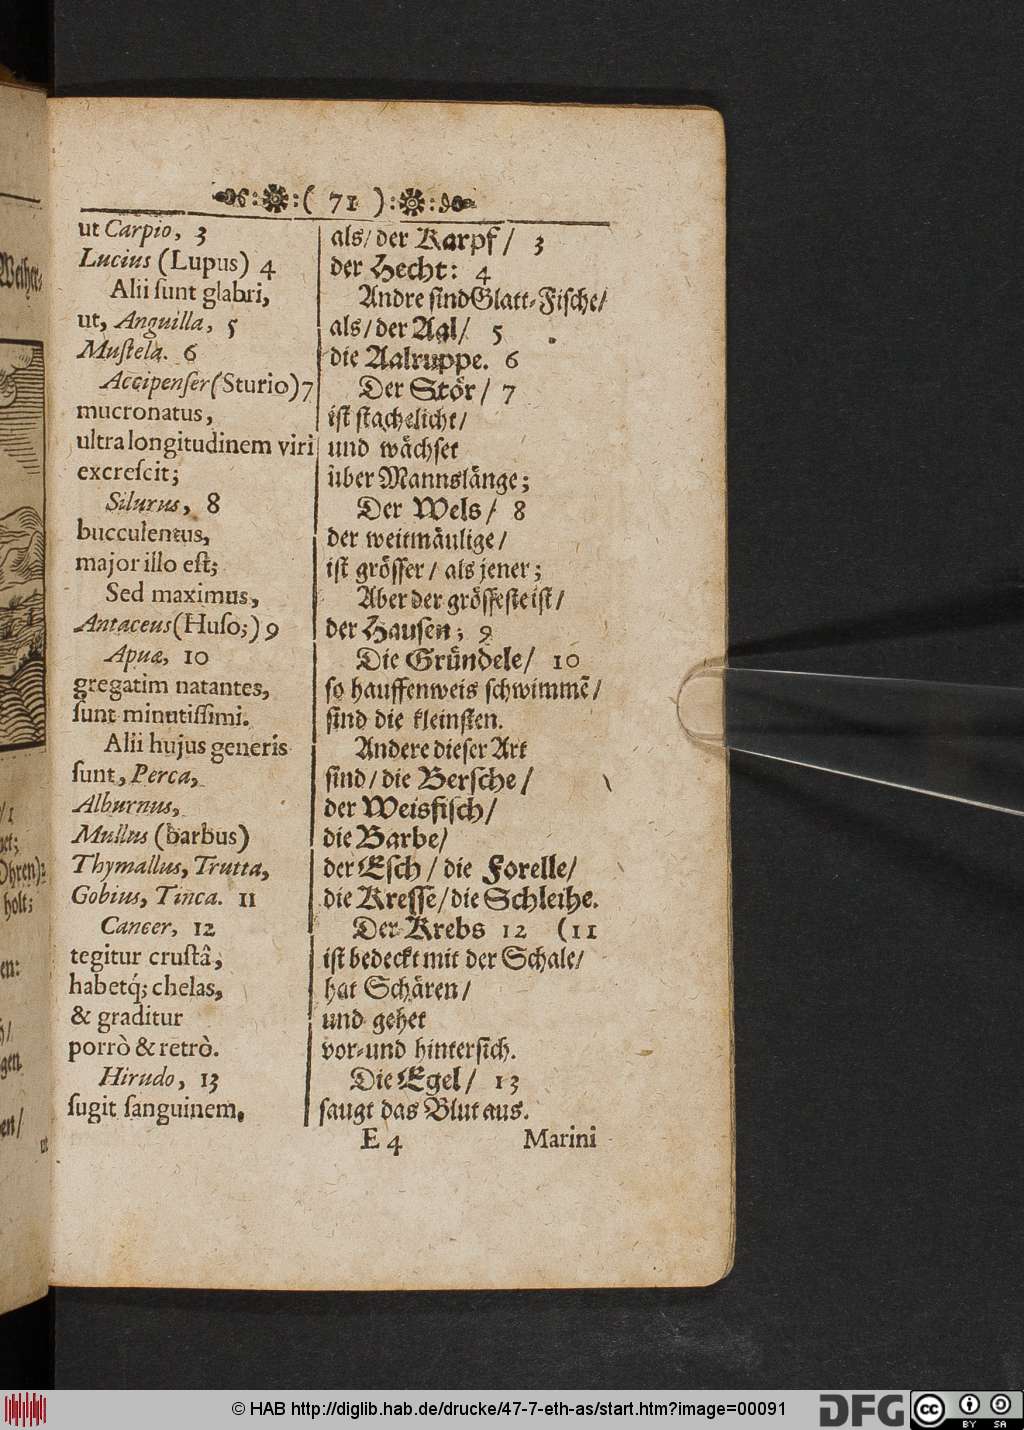 :( 71 ):
ut Carpio, 3
Lucius (Lupus) 4
Alii ſunt glabri,
ut, Anguilla, 5
Muſtela. 6
Accipenſer (Sturio) 7
mucronatus,
ultra longitudinem viri
excreſcit;
Silurus, 8
bucculentus,
major illo eſt;
Sed maximus,
Antaceus (Huſo;) 9
Apuæ, 10
gregatim natantes,
ſunt minutiſſimi.
Alii hujus generis
ſunt, Perca,
Alburnus,
Mullus (barbus)
Thymallus, Trutta,
Gobius, Tinca. 11
Cancer, 12
tegitur cruſtâ,
habetq́; chelas,
& graditur
porrò & retrò.
Hirudo, 13
ſugit ſanguinem.
als/ der Karpf/ 3
der Hecht: 4
Andre ſind Glatt-Fiſche/
als/ der Aal/ 5
die Aalruppe. 6
Der Stör/ 7
iſt ſtachelicht/
und wächſet
über Mannslänge;
Der Wels/ 8
der weitmäulige/
iſt gröſſer/ als jener;
Aber der gröſſeſte iſt/
der Hauſen; 9
Die Gründele/ 10
ſo hauffenweis ſchwimmẽ/
ſind die kleinſten.
Andere dieſer Art
ſind/ die Berſche/
der Weisfiſch/
die Barbe/
der Eſch/ die Forelle/
die Kreſſe/ die Schleihe.
Der Krebs 12 (11
iſt bedeckt mit der Schale/
hat Schären/
und gehet
vor-und hinterſich.
Die Egel/ 13
ſaugt das Blut aus.
E 4 Marini
© HAB http://diglib.hab.de/drucke/47-7-eth-as/start.htm?image=00091
DFG
cc BY SA